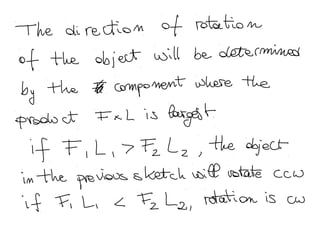 The direction of rotation
of the object will be determined
by the component where the
product F x L is largest
if F₁ L₁ > F₂ L₂, the object
in the previous sketch will rotate CCW
if F₁ L₁ < F₂ L₂, rotation is CW